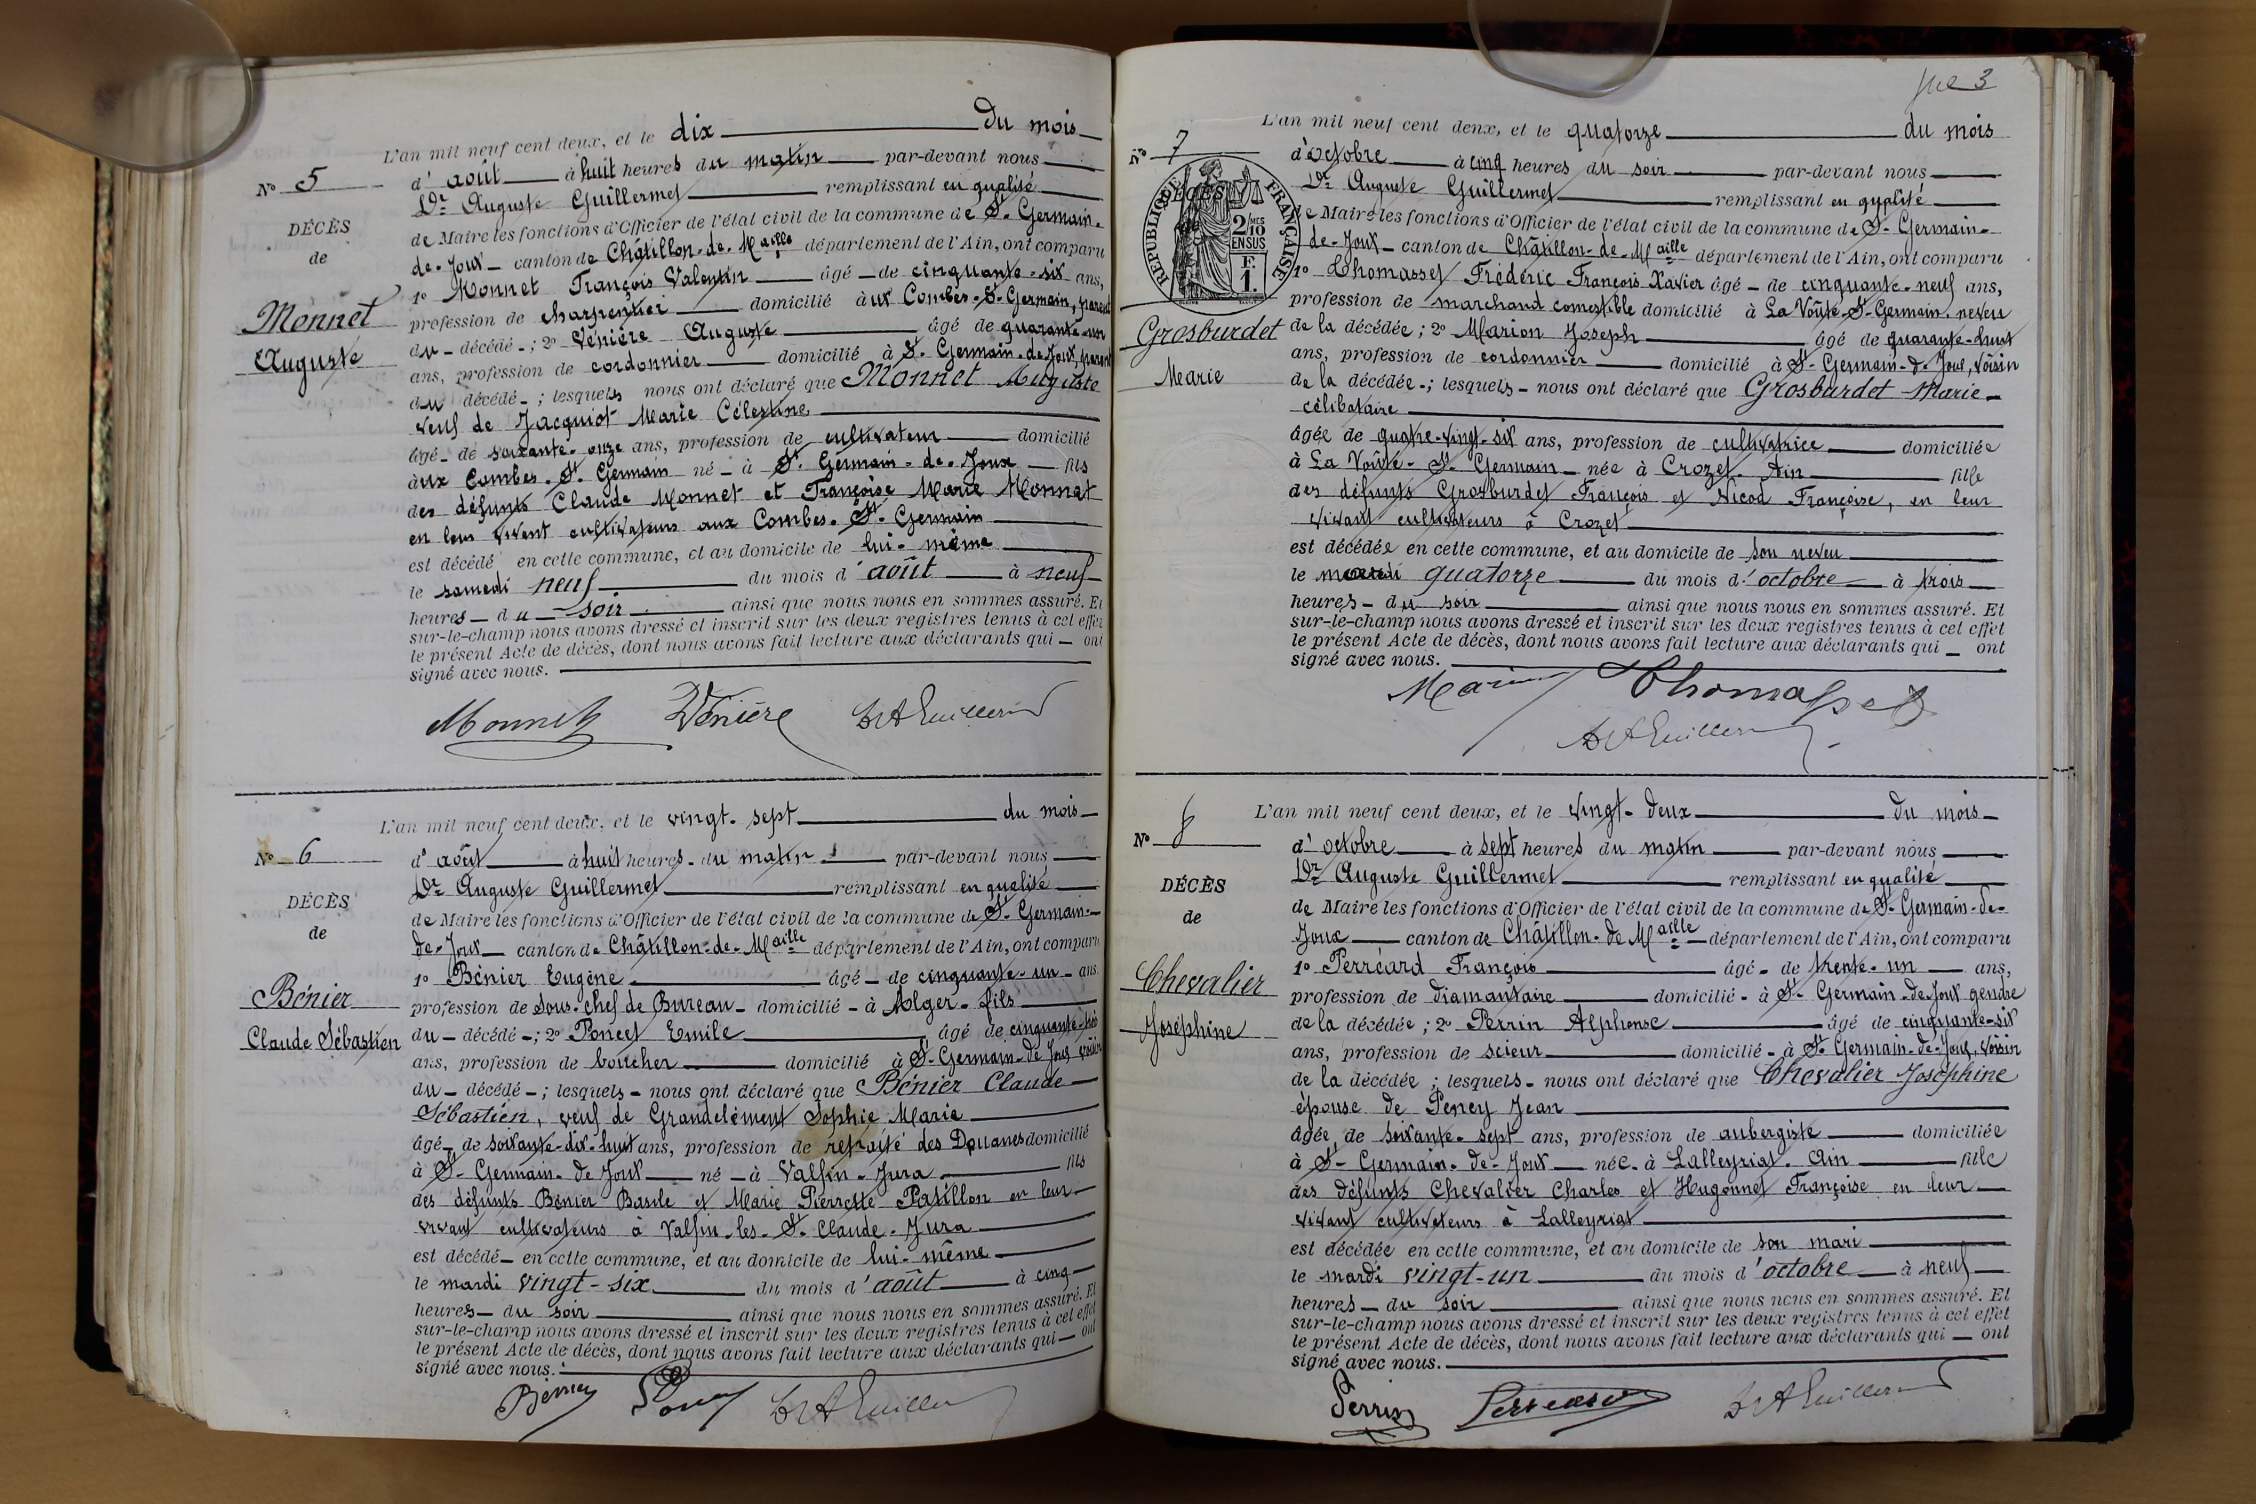 L'an mil neuf cent deux, et le dix du mois
d'août à huit heures du matin par-devant nous
Dr Auguste Guillermet remplissant en qualité
de Maire les fonctions d'Officier de l'état civil de la commune de St Germain-
de-Joux canton de Châtillon-de-Maille département de l'Ain, ont comparu
1o Monnet François Valentin âgé de cinquante-six ans,
profession de charpentier domicilié aux Combes-St-Germain, parent
du décédé; 2o Venière Auguste âgé de quarante-un
ans, profession de cordonnier domicilié à St Germain-de-Joux, parent
du décédé; lesquels nous ont déclaré que Monnet Auguste
veuf de Jacquiot Marie Célestine
âgé de soixante-onze ans, profession de cultivateur domicilié
aux Combes-St Germain né à St Germain-de-Joux fils
des défunts Claude Monnet et Françoise Marie Monnet
en leur vivant cultivateurs aux Combes-St Germain
est décédé en cette commune, et au domicile de lui-même
le samedi neuf du mois d'août à neuf
heures du soir ainsi que nous nous en sommes assuré. Et
sur-le-champ nous avons dressé et inscrit sur les deux registres tenus à cet effet
le présent Acte de décès, dont nous avons fait lecture aux déclarants qui ont
signé avec nous.
No 5
DÉCÈS
de
Monnet
Auguste
Monnet Venière Dr A Guillermet
L'an mil neuf cent deux, et le vingt-sept du mois
d'août à huit heures du matin par-devant nous
Dr Auguste Guillermet remplissant en qualité
de Maire les fonctions d'Officier de l'état civil de la commune de St Germain-
de-Joux canton de Châtillon-de-Maille département de l'Ain, ont comparu
1o Bénier Eugène âgé de cinquante-un ans
profession de Sous-chef de Bureau domicilié à Alger fils
du décédé; 2o Poncet Emile âgé de cinquante-trois
ans, profession de boucher domicilié à St Germain-de-Joux voisin
du décédé; lesquels nous ont déclaré que Bénier Claude
Sébastien, veuf de Grandclément Sophie Marie
âgé de soixante-dix-huit ans, profession de retraité des Douanes domicilié
à St Germain-de-Joux né à Valfin-Jura fils
des défunts Bénier Basile et Marie Pierrette Patillon en leur
vivant cultivateurs à Valfin-les-St Claude-Jura
est décédé en cette commune, et au domicile de lui-même
le mardi vingt-six du mois d'août à cinq
heures du soir ainsi que nous nous en sommes assuré. Et
sur-le-champ nous avons dressé et inscrit sur les deux registres tenus à cet effet
le présent Acte de décès, dont nous avons fait lecture aux déclarants qui ont
signé avec nous.
No 6
DÉCÈS
de
Bénier
Claude Sébastien
Bénier Poncet Dr A Guillermet
3
L'an mil neuf cent deux, et le quatorze du mois
d'octobre à cinq heures du soir par-devant nous
Dr Auguste Guillermet remplissant en qualité
de Maire les fonctions d'Officier de l'état civil de la commune de St Germain-
de-Joux canton de Châtillon-de-Maille département de l'Ain, ont comparu
1o Thomasset Frédéric François Xavier âgé de cinquante-neuf ans,
profession de marchand comestible domicilié à La Voûte-St-Germain, neveu
de la décédée; 2o Marion Joseph âgé de quarante-huit
ans, profession de cordonnier domicilié à St Germain-de-Joux, voisin
de la décédée; lesquels nous ont déclaré que Grosburdet Marie
célibataire
âgée de quatre-vingt-six ans, profession de cultivatrice domiciliée
à La Voûte-St Germain née à Crozet-Ain fille
des défunts Grosburdet François et Nicod Françoise, en leur
vivant cultivateurs à Crozet
est décédée en cette commune, et au domicile de son neveu
le mardi quatorze du mois d'octobre à trois
heures du soir ainsi que nous nous en sommes assuré. Et
sur-le-champ nous avons dressé et inscrit sur les deux registres tenus à cet effet
le présent Acte de décès, dont nous avons fait lecture aux déclarants qui ont
signé avec nous.
No 7
RÉPUBLIQUE FRANÇAISE
2/10 MES
EN SUS
F.
1.
Grosburdet
Marie
Marion Thomasset
Dr A Guillermet
L'an mil neuf cent deux, et le vingt-deux du mois
d'octobre à sept heures du matin par-devant nous
Dr Auguste Guillermet remplissant en qualité
de Maire les fonctions d'Officier de l'état civil de la commune de St Germain-de-
Joux canton de Châtillon-de Maille département de l'Ain, ont comparu
1o Perréard François âgé de trente-un ans,
profession de diamantaire domicilié à St Germain-de-Joux gendre
de la décédée; 2o Perrin Alphonse âgé de cinquante-six
ans, profession de scieur domicilié à St Germain-de-Joux, voisin
de la décédée; lesquels nous ont déclaré que Chevalier Joséphine
épouse de Peney Jean
âgée de soixante-sept ans, profession de aubergiste domiciliée
à St Germain-de-Joux née à Lalleyriat-Ain fille
des défunts Chevalier Charles et Hugonnet Françoise en leur
vivant cultivateurs à Lalleyriat
est décédée en cette commune, et au domicile de son mari
le mardi vingt-un du mois d'octobre à neuf
heures du soir ainsi que nous nous en sommes assuré. Et
sur-le-champ nous avons dressé et inscrit sur les deux registres tenus à cet effet
le présent Acte de décès, dont nous avons fait lecture aux déclarants qui ont
signé avec nous.
No 8
DÉCÈS
de
Chevalier
Joséphine
Perrin Perréard Dr A Guillermet